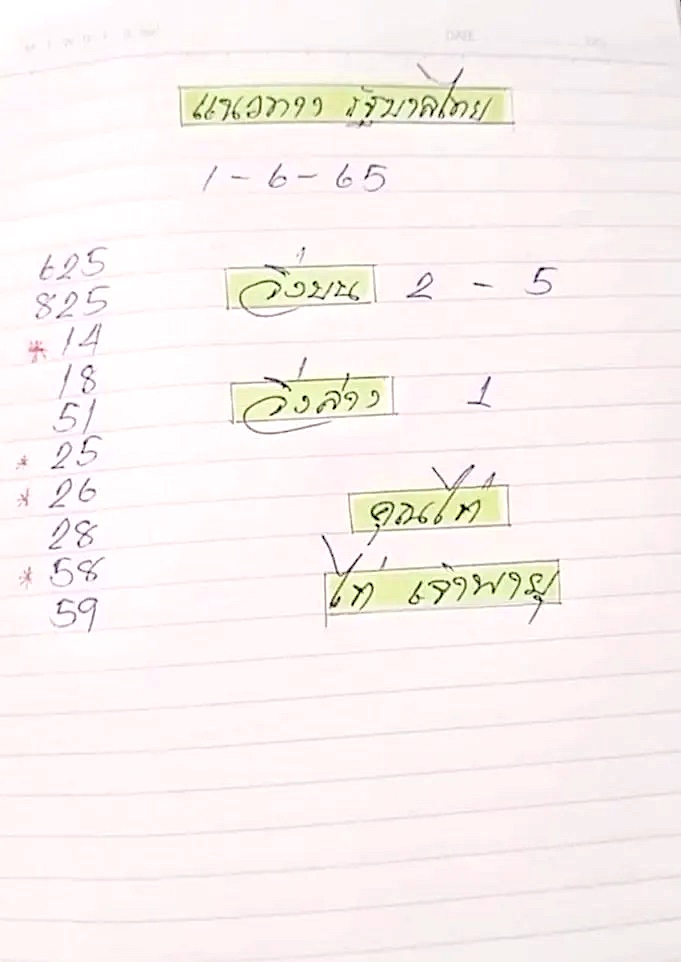 DATE
แนวทาง รัฐบาลไทย
1 - 6 - 65
625
825
* 14
18
51
* 25
* 26
28
* 58
59
วิ่งบน 2 - 5
วิ่งล่าง 1
คุณไก่
ไก่ เจ้าพายุ